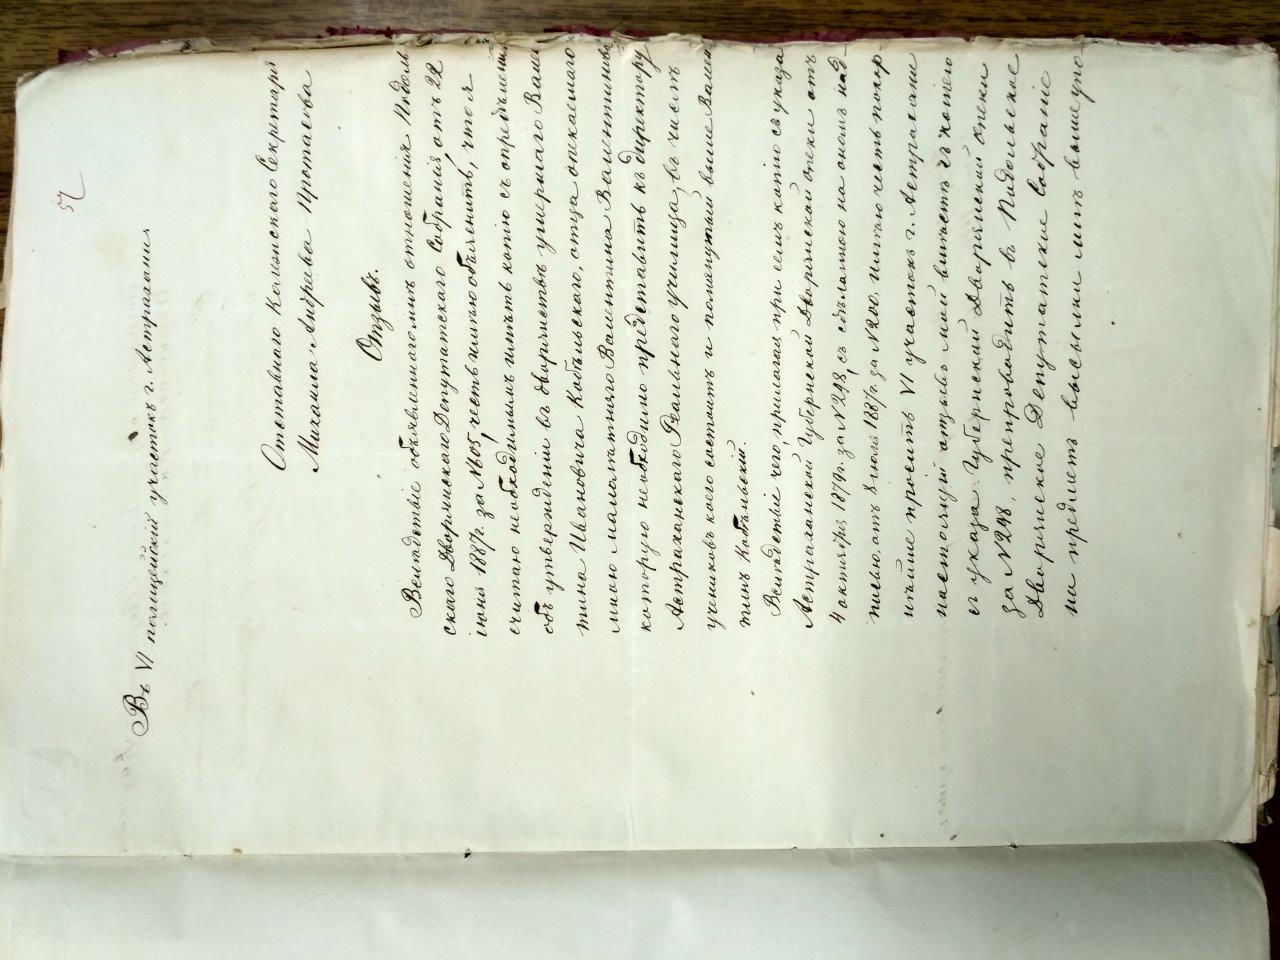 57
Въ VI полицейскій участокъ г. Астрахани.
Отставнаго Коллежскаго Секретаря
Михаила Андреева Протасова
Отзывъ.
Вслѣдствіе объявленнаго мнѣ отношенія Подоль
скаго Дворянскаго Депутатскаго Собранія отъ 22
іюня 1887 г. за №605, честь имѣю объяснить, что я
считаю необходимымъ имѣть копію съ опредѣленія
объ утвержденіи въ дворянствѣ умершаго Вален
тина Ивановича Кобыльскаго, отца опекаемаго
мною малолѣтняго Валентина Валентинова
которую необходимо представить къ директору
Астраханскаго Реальнаго училища, въ числѣ
учениковъ коего состоитъ и помянутый выше Вален
тинъ Кобыльскій.
Вслѣдствіе чего, прилагая при семъ копію съ указа
Астраханской Губернской Дворянской Опеки отъ
4 октября 1879 г. за №248, съ сдѣланною на ономъ над
писью отъ 8 іюля 1887 г. за №200. Имѣю честь покор
нѣйше просить VI участокъ г. Астрахани
настоящій отзывъ мой вмѣстѣ съ копіею
съ указа Губернской Дворянской Опеки
за №248, препроводить въ Подольское
Дворянское Депутатское Собраніе
на предметъ высылки мнѣ вышеупо